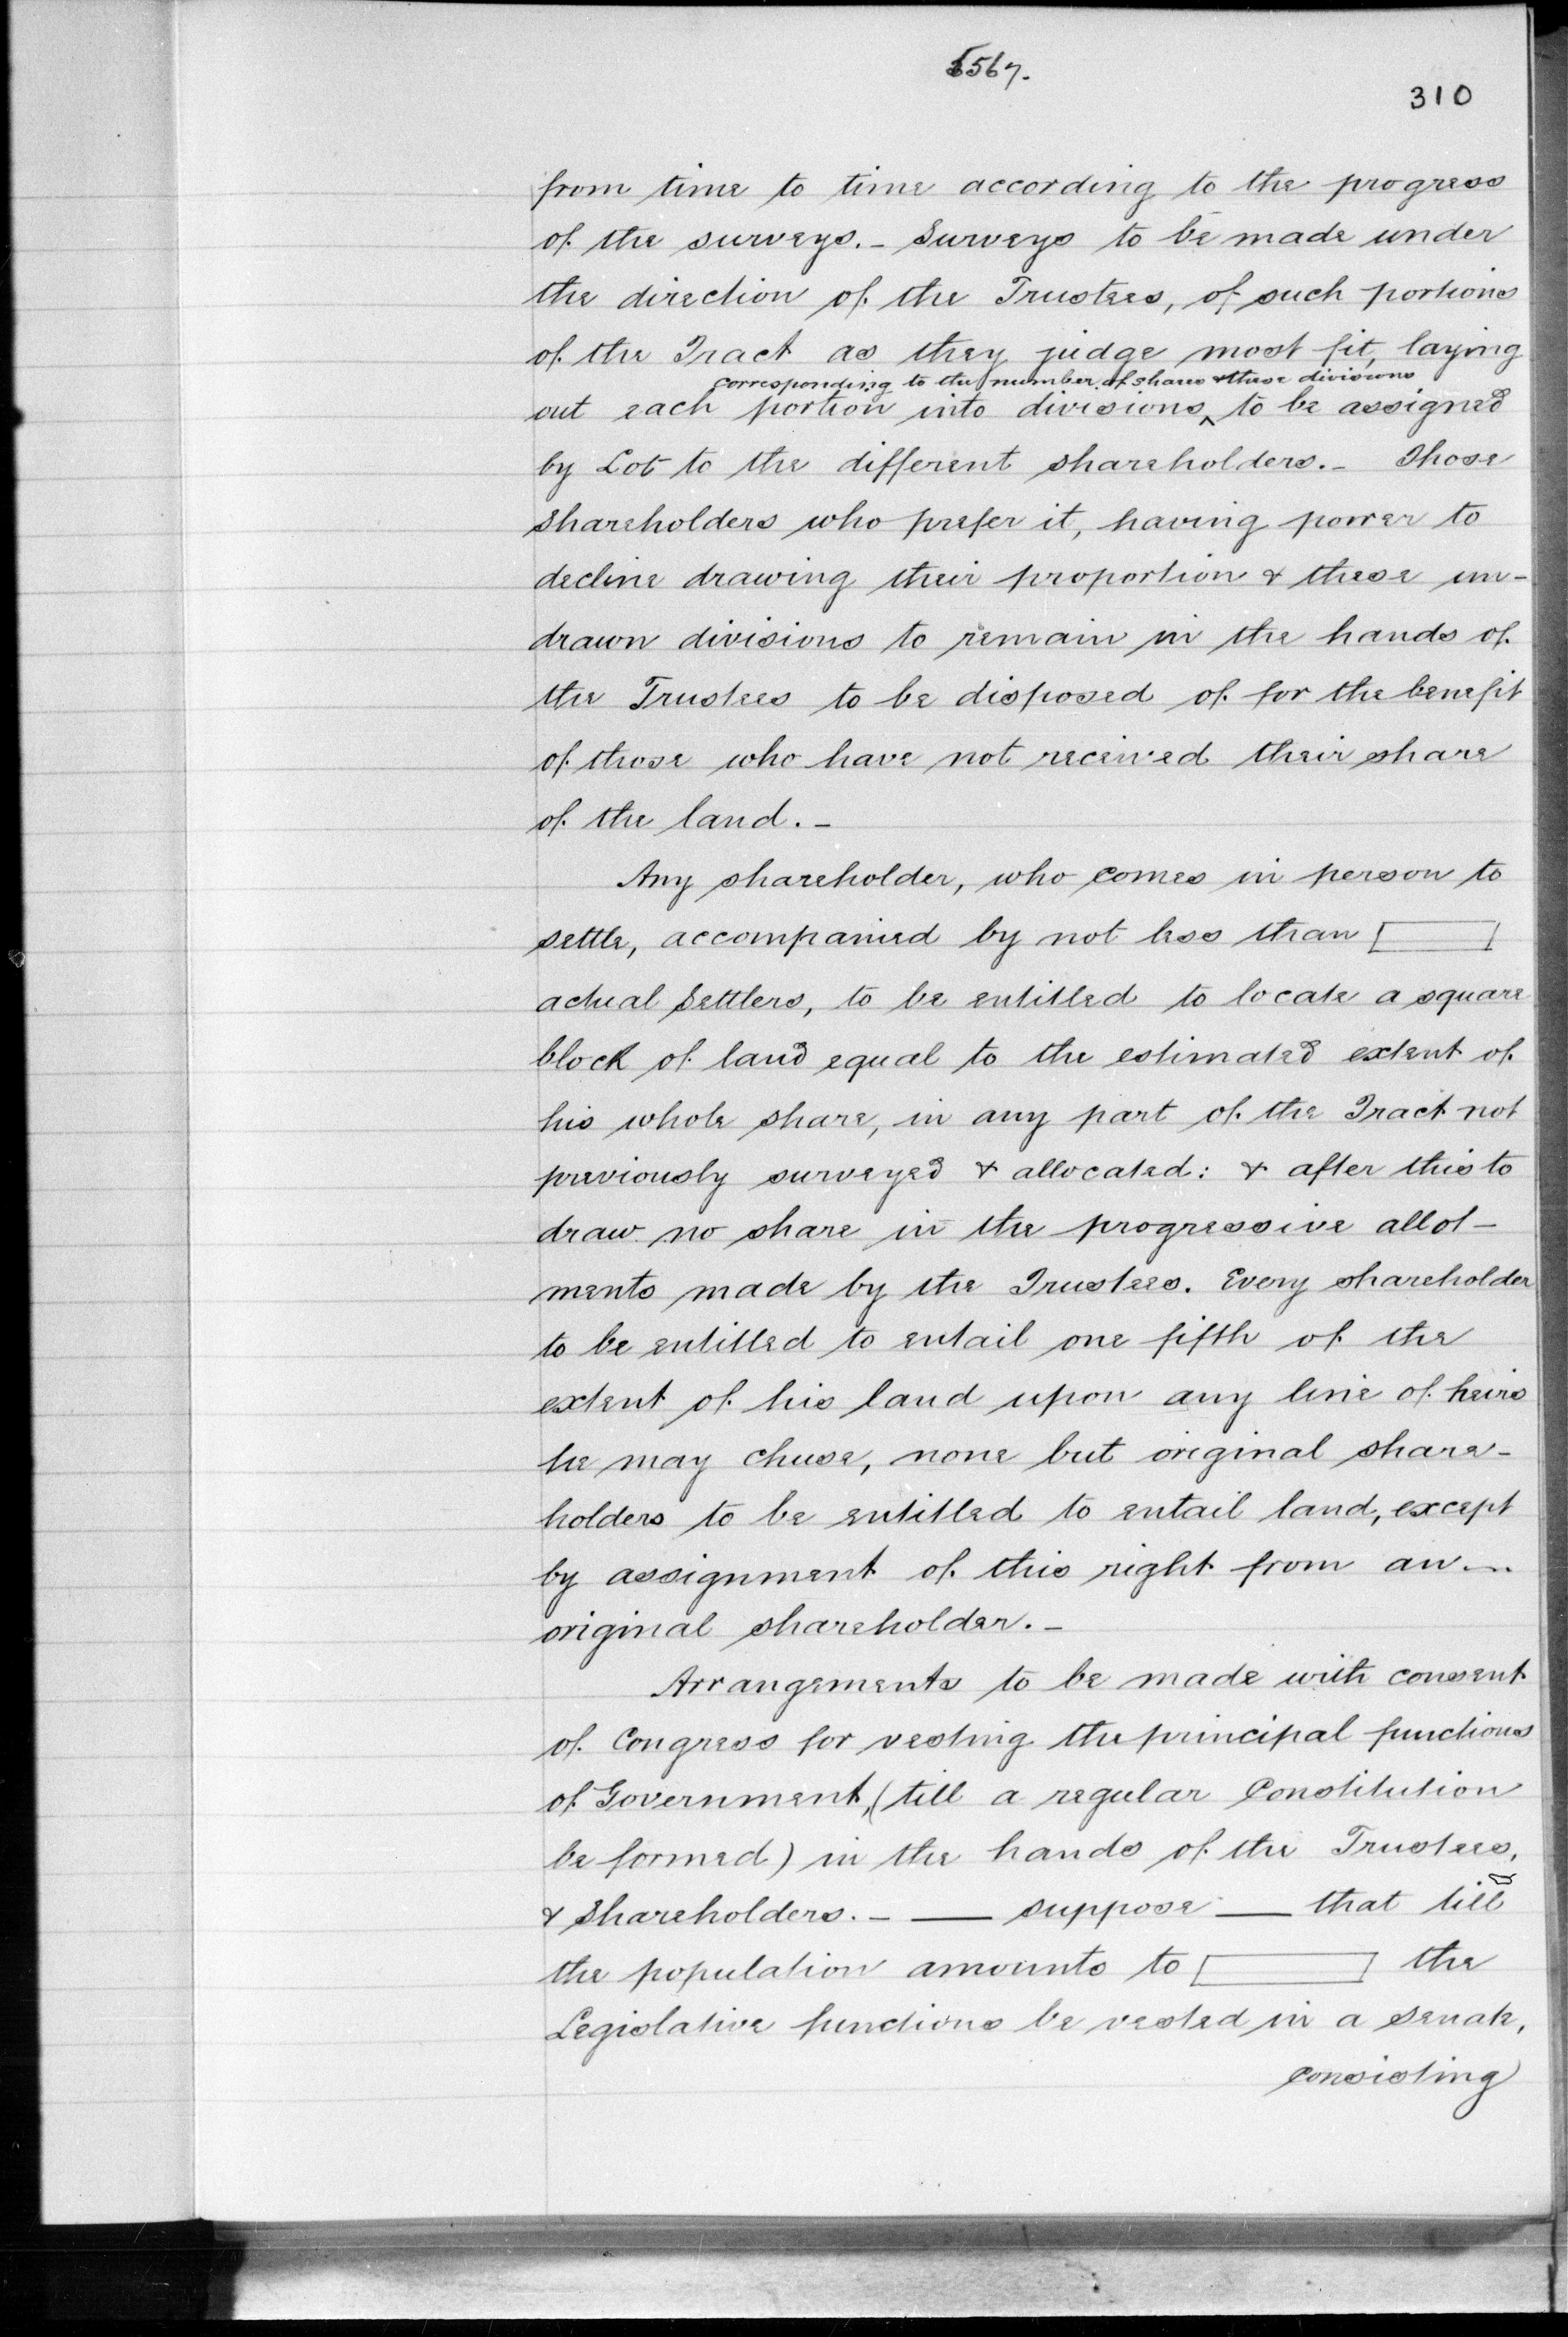 5567.
310
from time to time according to the progress
of the surveys. - Surveys to be made under
the direction of the Trustees, of such portions
of the Tract as they judge most fit, laying
corresponding to the number of shares & these divisions
out each portion into divisions ^ to be assigned
by Lot to the different shareholders. - Those
Shareholders who prefer it, having power to
decline drawing their proportion & these un-
drawn divisions to remain in the hands of
the Trustees to be disposed of for the benefit
of those who have not received their share
of the land. -
Any shareholder, who comes in person to
settle, accompanied by not less than [ ]
actual Settlers, to be entitled to locate a square
block of land equal to the estimated extent of
his whole share, in any part of the Tract not
previously surveyed & allocated: & after this to
draw no share in the progressive allot-
ments made by the Trustees. Every shareholder
to be entitled to entail one fifth of the
extent of his land upon any line of heirs
he may chuse, none but original share-
holders to be entitled to entail land, except
by assignment of this right from an -
original shareholder. -
Arrangements to be made with consent
of Congress for vesting the principal functions
of Government, (till a regular Constitution
be formed) in the hands of the Trustees,
& Shareholders. - — suppose — that till
the population amounts to [ ] the
Legislative functions be vested in a Senate,
consisting